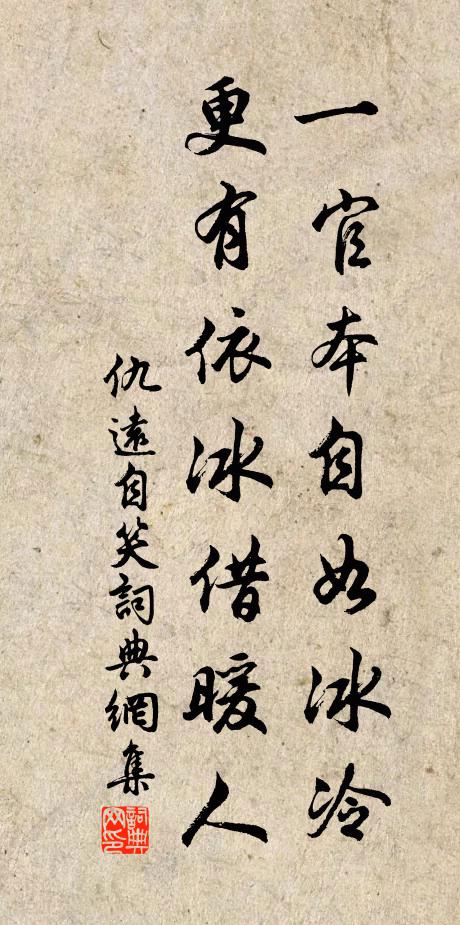 一官本自如冰冷
更有依冰借暖人
仇遠自笑詞典網集
詞典網印